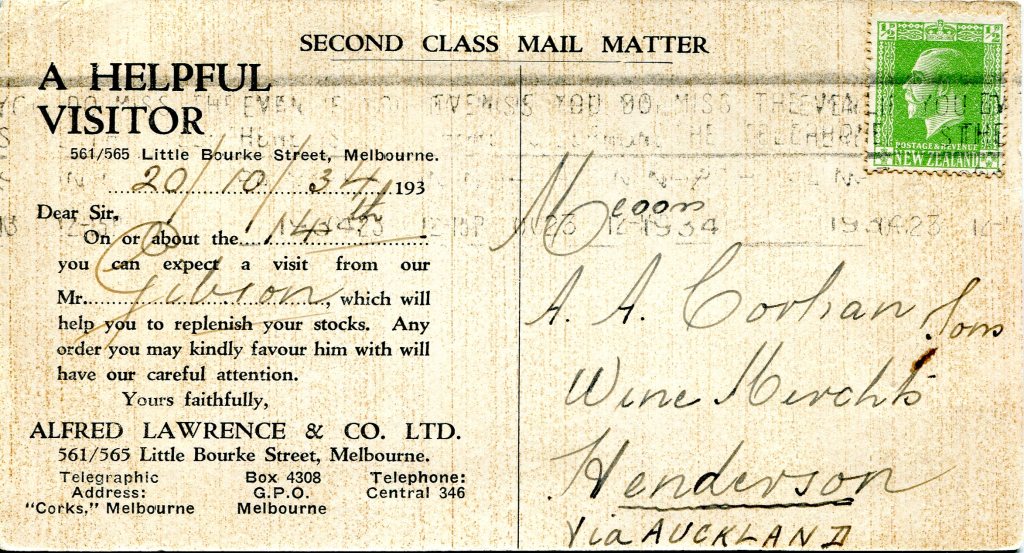 SECOND CLASS MAIL MATTER
A HELPFUL
VISITOR
561/565 Little Bourke Street, Melbourne.
20/10/34 193
Dear Sir,
On or about the 14th
you can expect a visit from our
Mr. Gibson, which will
help you to replenish your stocks. Any
order you may kindly favour him with will
have our careful attention.
Yours faithfully,
ALFRED LAWRENCE & CO. LTD.
561/565 Little Bourke Street, Melbourne.
Telegraphic Address: "Corks," Melbourne
Box 4308 G.P.O. Melbourne
Telephone: Central 346
½ ½
POSTAGE & REVENUE
NEW ZEALAND
YOU DO MISS THE
1934
A. A. Corban Sons
Wine Merchts
Henderson
Via AUCKLAND